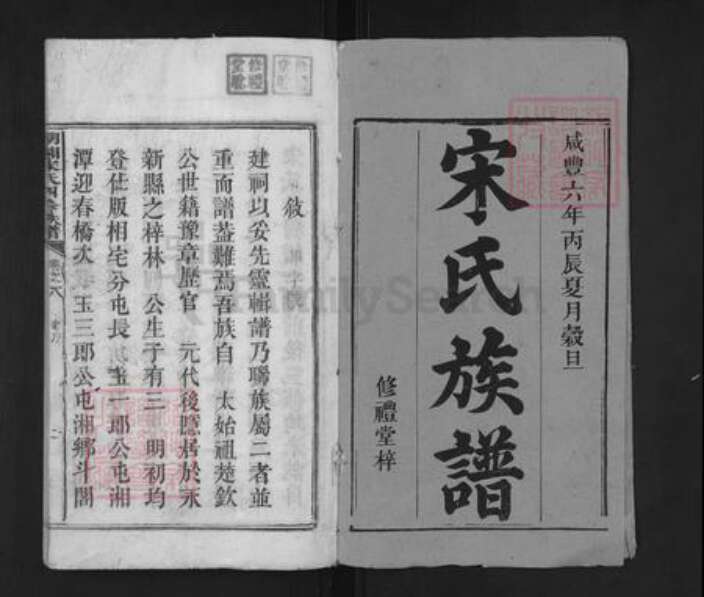 咸豐六年丙辰夏月穀旦
宋氏族譜
修禮堂梓
敘
建祠以妥先靈輯譜乃聯族屬二者並
重而譜葢難焉吾族自 太始祖楚欽
公世籍豫章歷官 元代後隱居於永
新縣之梓林 公生子有三 明初均
登仕版相宅分屯長 玉一郎公屯湘
潭迎春橋次 玉三郎公屯湘鄉斗閣
FamilySearch